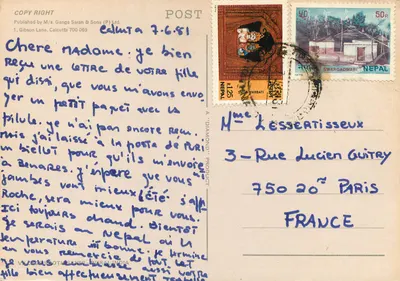 COPY RIGHT
POST
Published by M/s. Ganga Saran & Sons (P) Ltd.
Calcutta 700 069
Calcuta 7.6.81
Chere Madame. je bien
reçu une lettre de votre fille
qui disi, que vous m'avons envo
yer un petit paquet avec la
pilule. je n'ai pas encore reçu.
mis j'ai laissé à la poste de
un biellot pour qu'ils m'envoie
à Benares. j'espere que vos
jambes vont mieux l'été s'app
Roche, sera mieux pour vous.
Ici toujours chaud. Bientôt
je serais au Nepal où la
temperature est bonne. je termine
en vous remercie de tout et
je vous embrasse aussi votre
fille bien affectueusement
NEPAL
1.25
NEPAL
50
Mme LESSERTISSEUX
3-Rue Lucien GUITRY
75020 PARIS
FRANCE